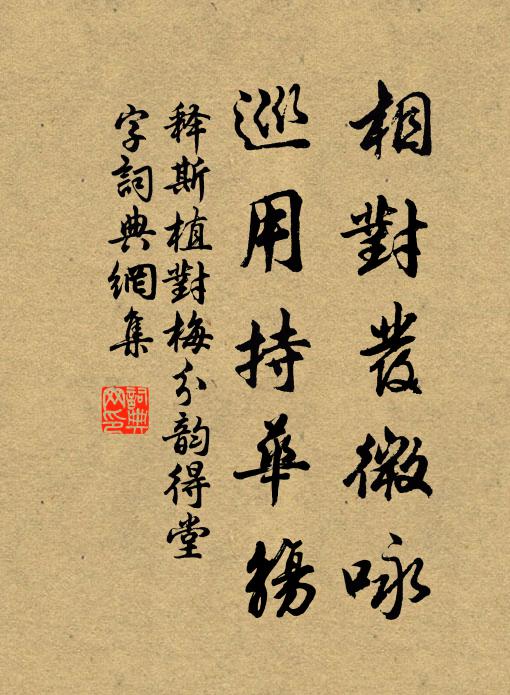 相對發微咏
巡用持華觴
释斯植對梅分韵得堂
字詞典網集
詞典网印